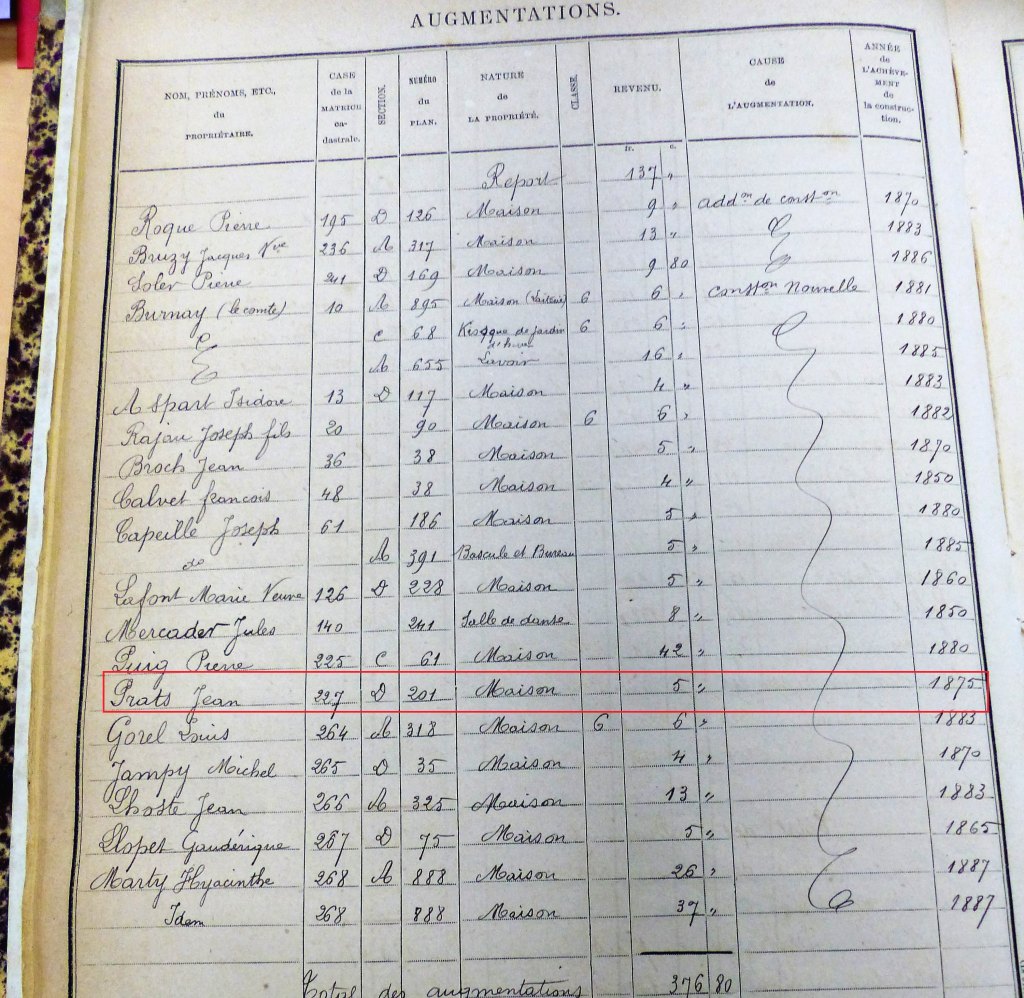 AUGMENTATIONS.
NOM, PRÉNOMS, ETC., du PROPRIÉTAIRE. CASE de la MATRICE ca-dastrale. SECTION. NUMÉRO du PLAN. NATURE de LA PROPRIÉTÉ. CLASSE. REVENU. CAUSE de L'AUGMENTATION. ANNÉE de L'ACHÈVE-MENT de la construc-tion.
fr. c.
Report 137 "
Roque Pierre 195 D 126 Maison 9 " add.on de const.on 1870
Bruzy Jacques Vve 236 A 317 Maison 13 " 1883
Soler Pierre 241 D 169 Maison 9 80 1886
Burnay (le comte) 10 A 895 Maison 6 6 " const.on nouvelle 1881
C 68 Kiosque de jardin 6 6 " 1880
A 655 Lavoir 16 " 1885
Aspart Isidore 13 D 117 Maison 4 " 1883
Rajau Joseph fils 20 90 Maison 6 6 " 1882
Broch Jean 36 38 Maison 5 " 1870
Calvet francois 48 38 Maison 4 " 1850
Capeille Joseph 61 186 Maison 5 " 1880
do A 391 Bascule et Bureau 5 " 1885
Lafont Marie Veuve 126 D 228 Maison 5 " 1860
Mercader Jules 140 241 Salle de danse 8 " 1850
Puig Pierre 225 C 61 Maison 42 " 1880
Prats Jean 227 D 201 Maison 5 " 1875
Gorel Louis 264 A 318 Maison 6 6 " 1883
Jampy Michel 265 D 35 Maison 4 " 1870
Lhoste Jean 266 A 325 Maison 13 " 1883
Llopet Gaudérique 267 D 75 Maison 5 " 1865
Marty Hyacinthe 268 A 888 Maison 26 " 1887
Idem 268 888 Maison 37 " 1887
Total des augmentations 376 80